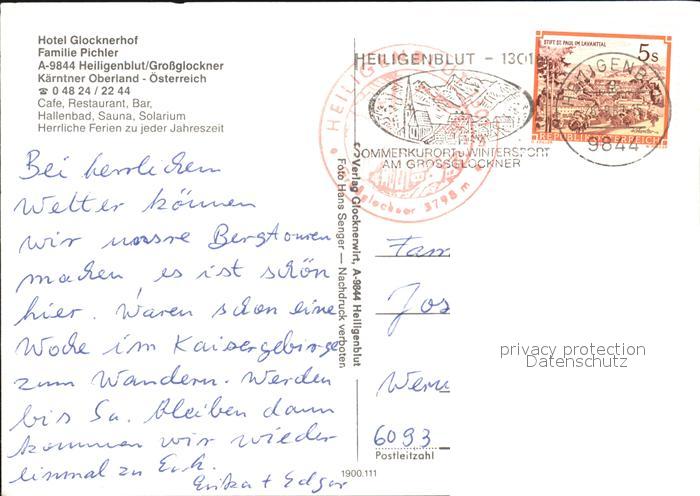 Hotel Glocknerhof
Familie Pichler
A-9844 Heiligenblut/Großglockner
Kärntner Oberland - Österreich
☎ 0 48 24 / 22 44
Cafe, Restaurant, Bar,
Hallenbad, Sauna, Solarium
Herrliche Ferien zu jeder Jahreszeit
Bei herrlichem
Wetter können
wir unsre Bergtouren
machen, es ist schön
hier. Waren schon eine
Woche im Kaisergebirge
zum Wandern. Werden
bis Sa. bleiben dann
kommen wir wieder
einmal zu Euch.
Erika + Edgar
© Verlag Glocknerwirt, A-9844 Heiligenblut
Foto Hans Senger — Nachdruck verboten
1900.111
HEILIGENBLUT - 1301
SOMMERKURORT u WINTERSPORT
AM GROSSGLOCKNER
HEILIGENBLUT
Großglockner 3798 m
STIFT ST. PAUL IM LAVANTTAL
5 S
REPUBLIK ÖSTERREICH
HEILIGENBLUT
9844
Fam
Jos
6093
Postleitzahl
privacy protection
Datenschutz